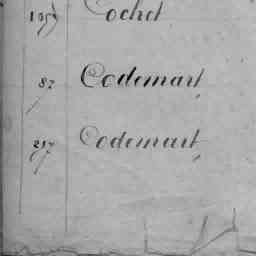 Cochet
82 Codemart,
217 Codemart,